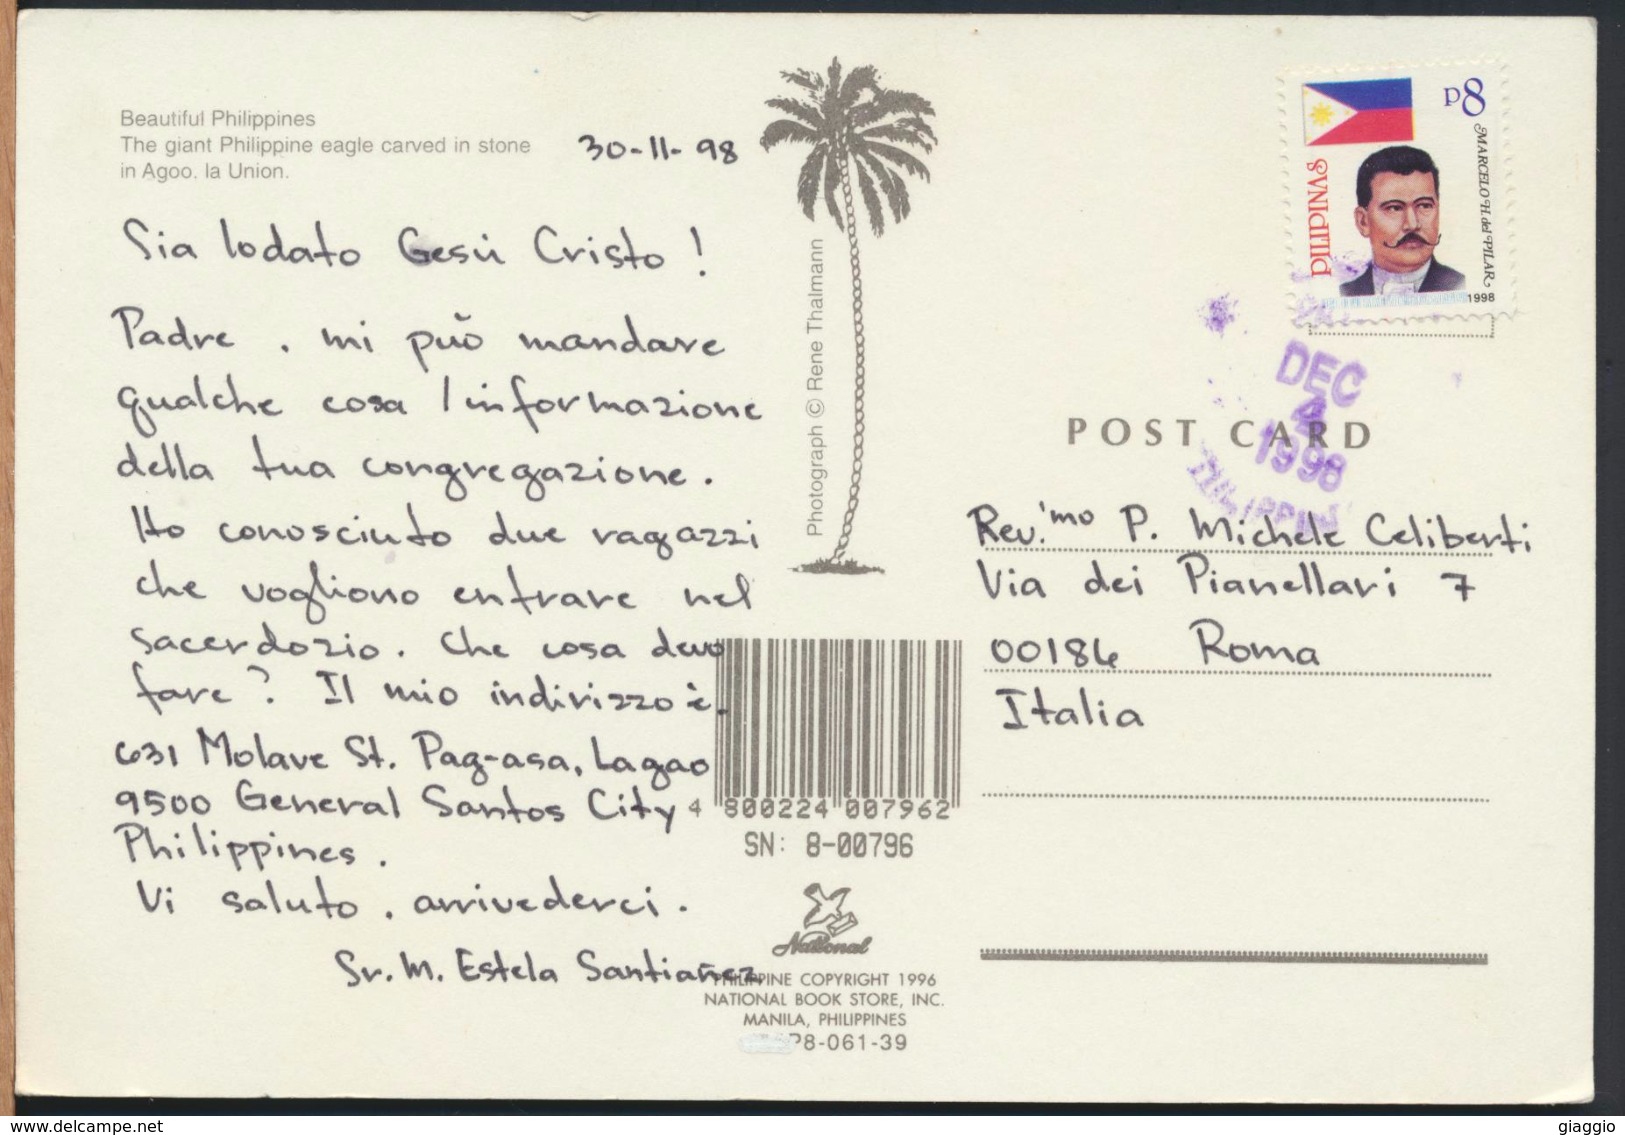 Beautiful Philippines
The giant Philippine eagle carved in stone
in Agoo, la Union.
30-11-98
Sia lodato Gesù Cristo!
Padre, mi può mandare
qualche cosa / informazione
della tua congregazione.
Ho conosciuto due ragazzi
che vogliono entrare nel
sacerdozio. Che cosa devo
fare? Il mio indirizzo è.
631 Molave St. Pag-asa, Lagao
9500 General Santos City
Philippines.
Vi saluto, arrivederci.
Sr. M. Estela Santiañez
Photograph © Rene Thalmann
4 800224 007962
SN: 8-00796
National
PHILIPPINE COPYRIGHT 1996
NATIONAL BOOK STORE, INC.
MANILA, PHILIPPINES
P8-061-39
PILIPINAS
P8
MARCELO H. del PILAR
1998
DEC
4
1998
PHILIPPINES
POST CARD
Rev.'mo P. Michele Celiberti
Via dei Pianellari 7
00186 Roma
Italia
www.delcampe.net
giaggio